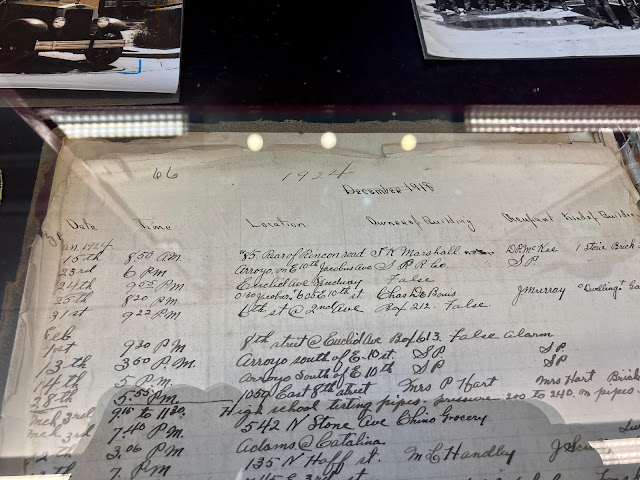 66 1924
December 1918
Date Time Location Owner of Building Occupant Kind of Building
Jan. 1924
15th 8:50 AM. 85 Rear of Rincon road J. K. Marshall D.P. McKee 1 Storie Brick
23rd 6 P.M. Arroyo, on E 10th Jacobus Ave S.P.R. Co. S.P.
24th 9:05 P.M. Euclid Ave False
25th 8:20 P.M. 605 E 10th st. Chas De Bows J Murray "Dwelling"
31st 9:22 P.M. 6th st @ 2nd Ave Box 212. False
Feb
1st 9:30 P.M. 8th street @ Euclid Ave Box 613. False Alarm
13th 3:50 P.M. Arroyo south of E. 10 st. S.P. S.P.
14th 5 P.M. Arroyo South of E 10th S.P. S.P.
28th 5:55 P.M. 1050 East 8th street Mrs P Hart Mrs Hart Brick
Mch 3rd 9:15 to 11:30. High school testing pipes. pressure 200 to 240. on pipes.
Mch 3rd 7:40 P.M. 542 N Stone Ave Chino Grocery
3:06 P.M. Adams @ Catalina
7. P.M. 135 N Hoff st. M. C. Handley
E 3rd st